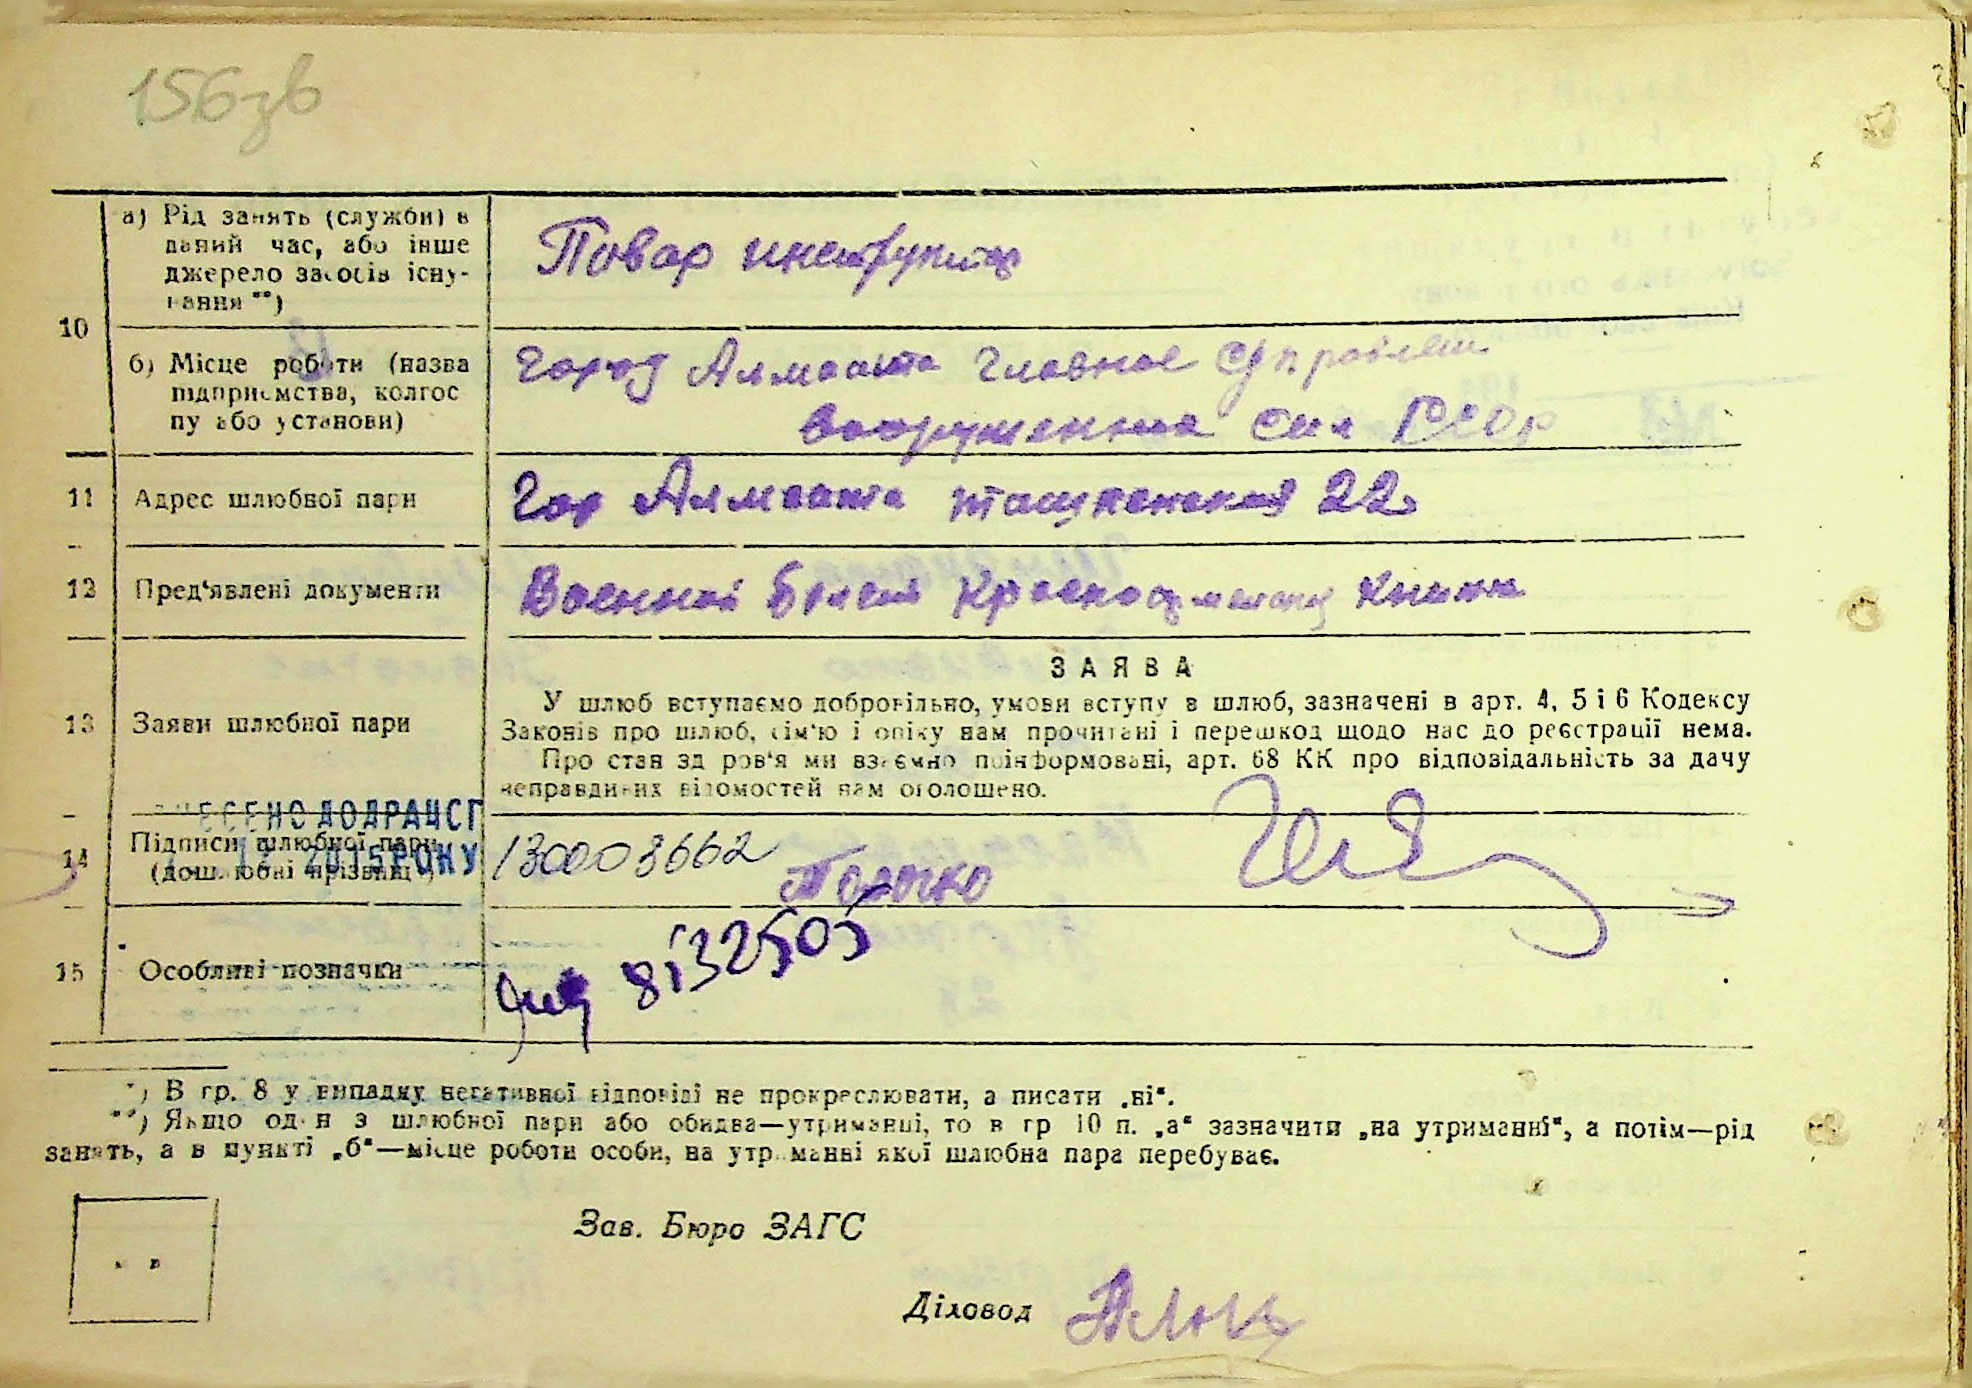 156зв
а) Рід занять (служби) в
даний час, або інше
джерело засобів існу-
вання **)
Повар инструктор
10
б) Місце роботи (назва
підприємства, колгос
пу або установи)
город Алмаата Главное
Вооруженных сил СССР
11 Адрес шлюбної пари
Гор Алмаата Ташкенская 22
12 Пред'явлені документи
Военный билет Красноармейская книжка
13 Заяви шлюбної пари
ЗАЯВА
У шлюб вступаємо добровільно, умови вступу в шлюб, зазначені в арт. 4, 5 і 6 Кодексу
Законів про шлюб, сім'ю і опіку нам прочитані і перешкод щодо нас до реєстрації нема.
Про стан здоров'я ми взаємно поінформовані, арт. 68 КК про відповідальність за дачу
неправдивих відомостей нам оголошено.
ВНЕСЕНО ДО ДРАЦСГ
2015 РОКУ
14 Підписи шлюбної пари
(дошлюбні прізвищ)
130003662
Толочко
15 Особливі позначки
8132505
*) В гр. 8 у випадку негативної відповіді не прокреслювати, а писати „ні“.
**) Якщо один з шлюбної пари або обидва—утриманці, то в гр 10 п. „а“ зазначити „на утриманні“, а потім—рід
занять, а в пункті „б“—місце роботи особи, на утриманні якої шлюбна пара перебуває.
Зав. Бюро ЗАГС
Діловод